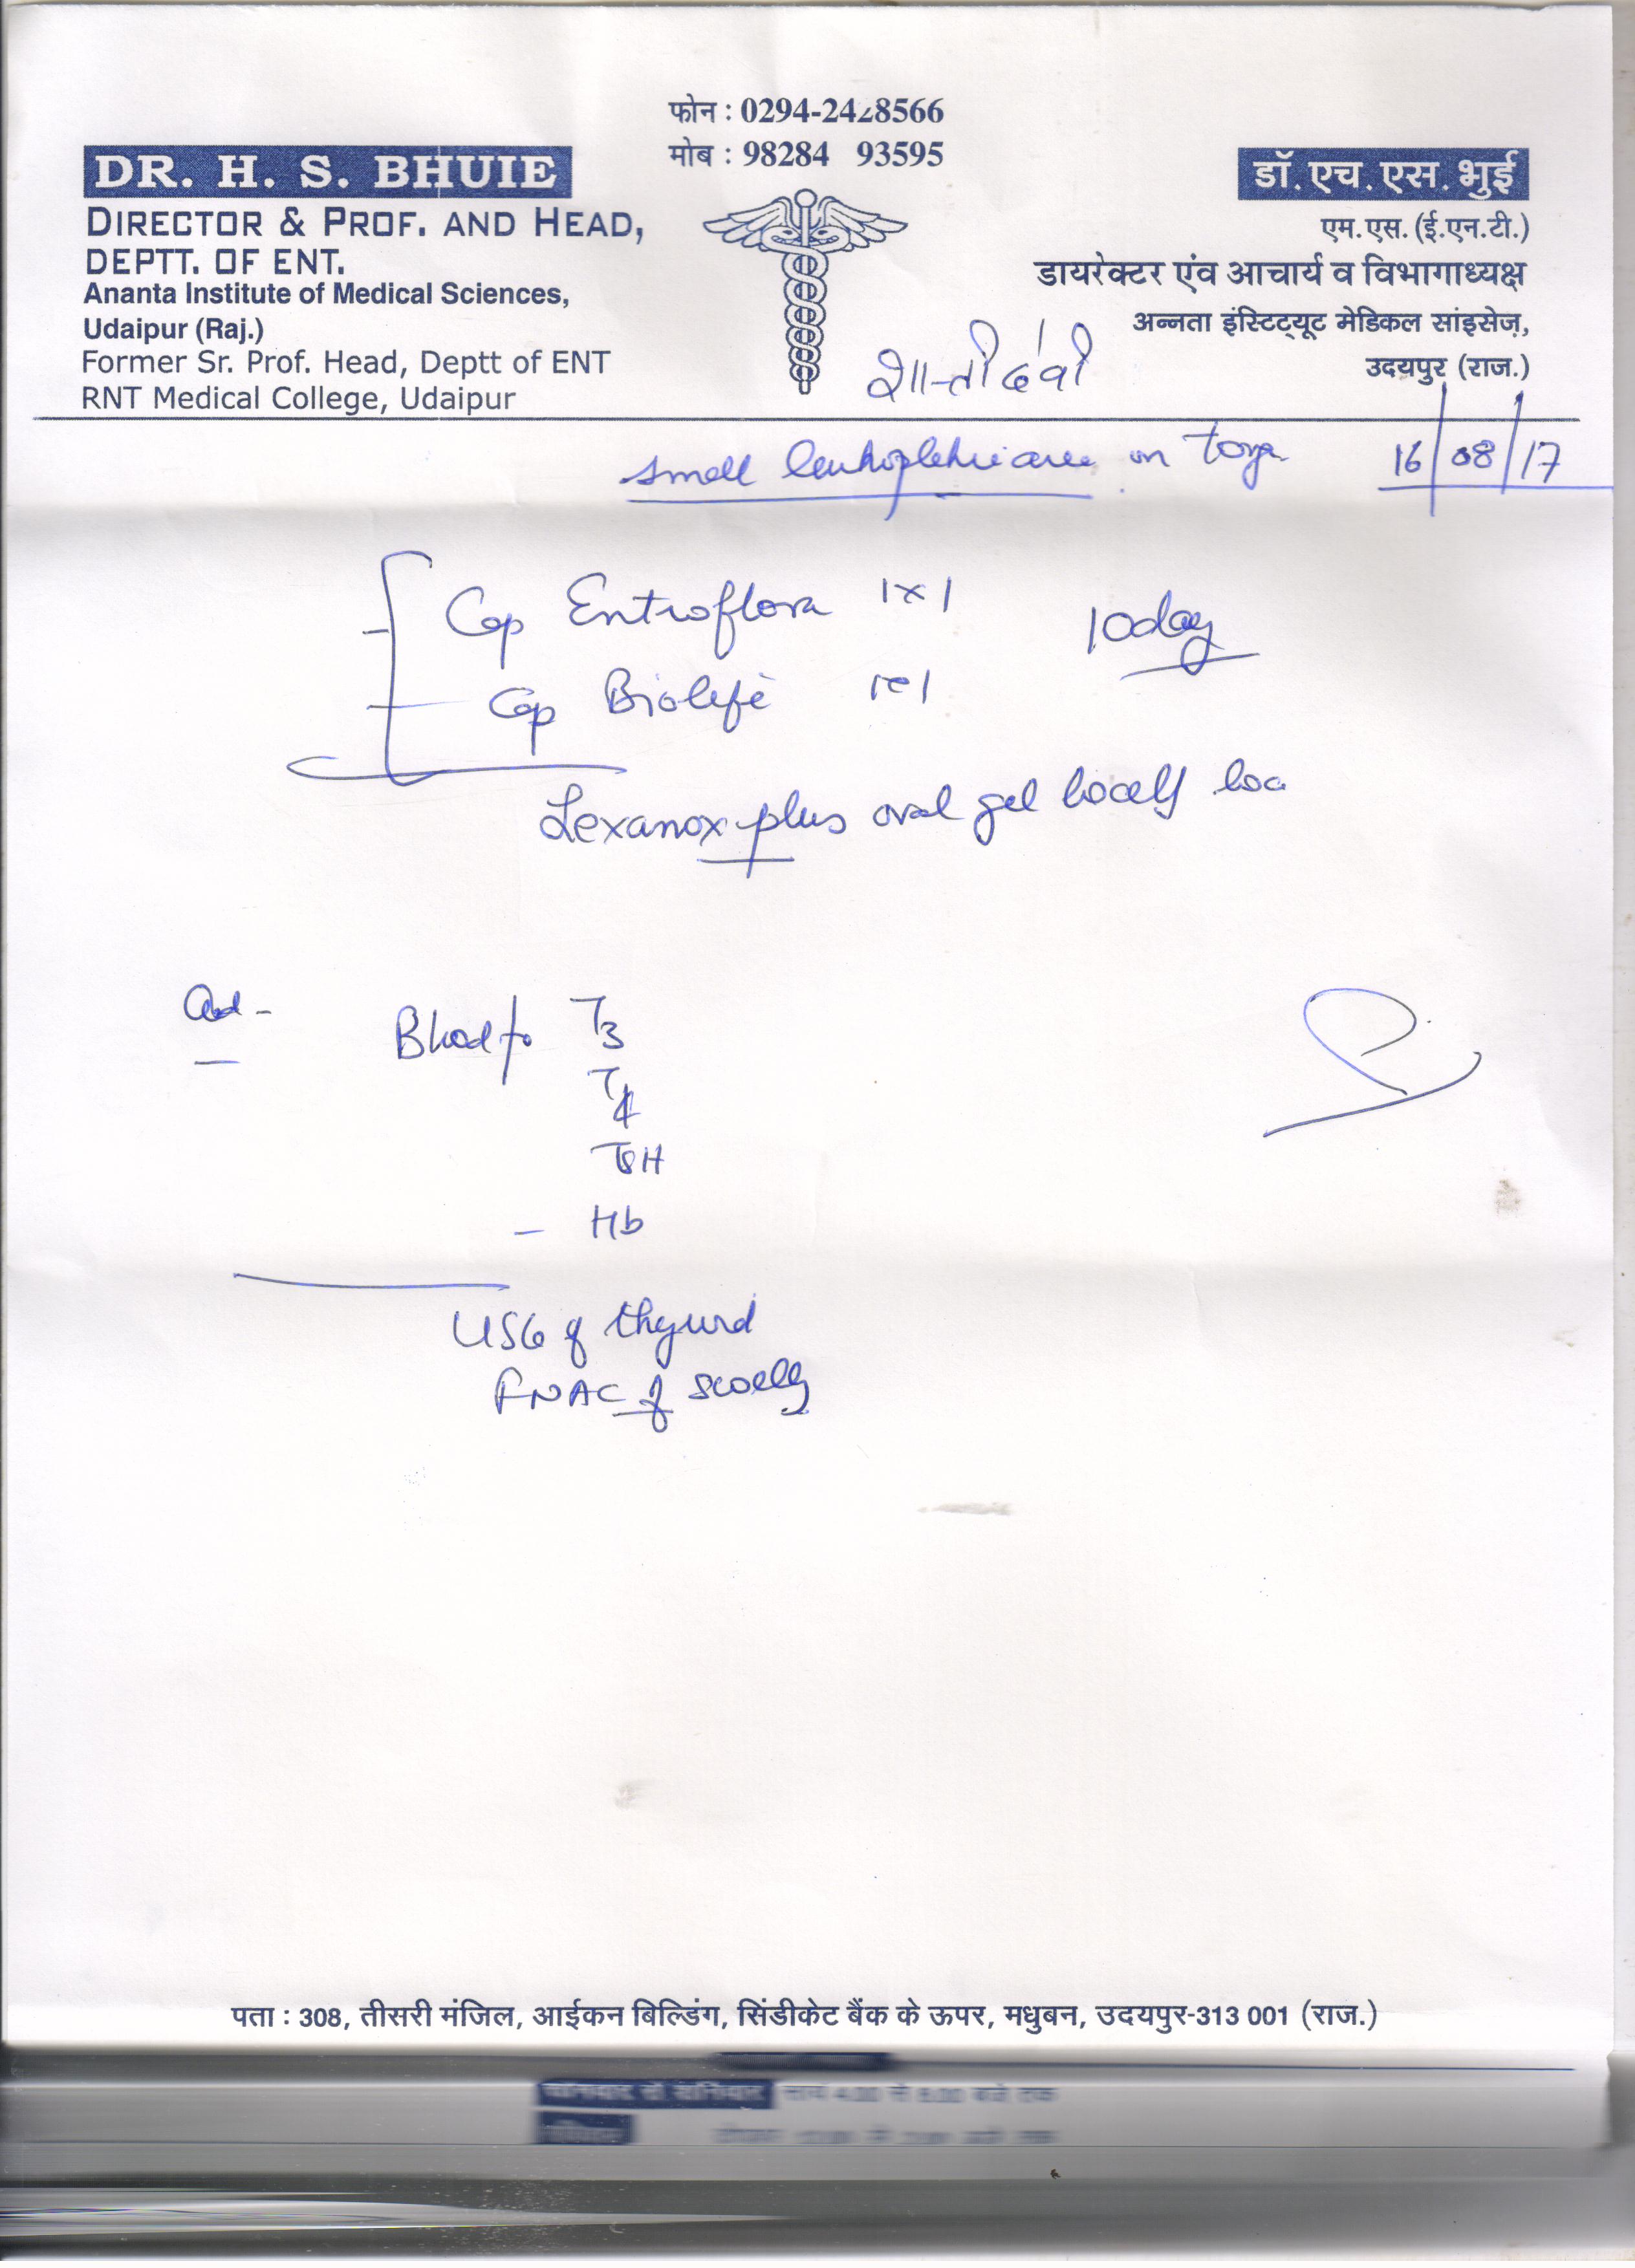 फोन : 0294-2428566
मोब : 98284 93595
DR. H. S. BHUIE
DIRECTOR & PROF. AND HEAD,
DEPTT. OF ENT.
Ananta Institute of Medical Sciences,
Udaipur (Raj.)
Former Sr. Prof. Head, Deptt of ENT
RNT Medical College, Udaipur
डॉ. एच. एस. भुई
एम.एस. (ई.एन.टी.)
डायरेक्टर एंव आचार्य व विभागाध्यक्ष
अन्नता इंस्टिट्यूट मेडिकल सांइसेज़,
उदयपुर (राज.)
शान्ती देवी
small on
16/08/17
Cap Entroflora 1x1 10day
Cap Biolife 1x1
Lexanox plus oral gel locally
Ad -
Blood for T3
T4
TSH
- Hb
USG of thyroid
FNAC of
पता : 308, तीसरी मंजिल, आईकन बिल्डिंग, सिंडीकेट बैंक के ऊपर, मधुबन, उदयपुर-313 001 (राज.)